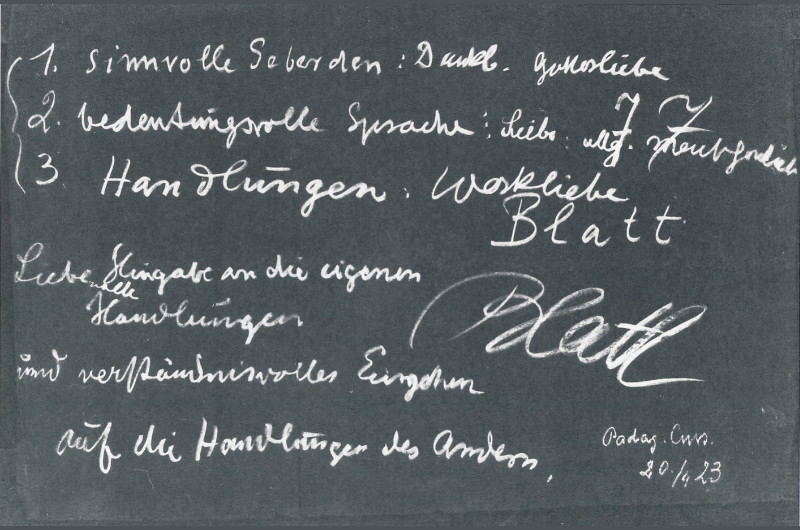 1. sinnvolle Geberden: Dankb. Gottesliebe
2. bedeutungsvolle Sprache: Liebe allg. menschheitl.
7 7
3. Handlungen: Werkliebe
Blatt
Liebevolle Hingabe an die eigenen
Handlungen
Blatt
und verständnisvolles Eingehen
auf die Handlungen des Andern,
Padag. Curs.
20./4 23